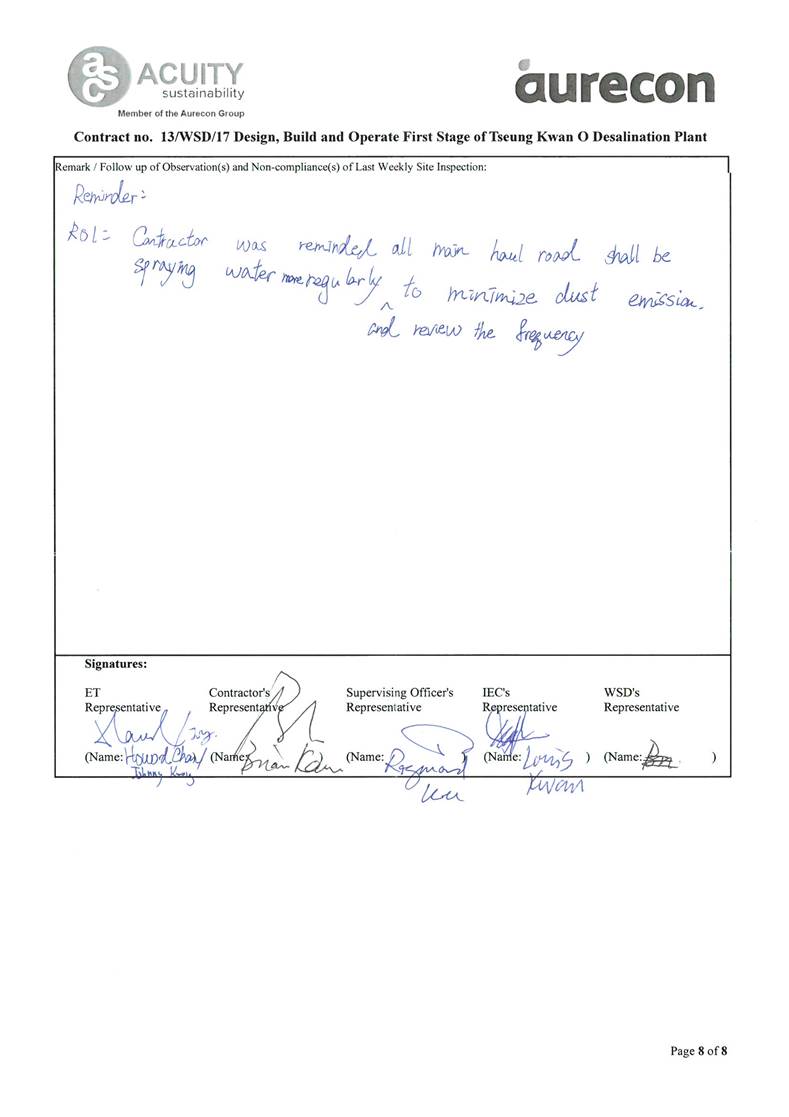 asc ACUITY
sustainability
Member of the Aurecon Group
aurecon
Contract no. 13/WSD/17 Design, Build and Operate First Stage of Tseung Kwan O Desalination Plant
Remark / Follow up of Observation(s) and Non-compliance(s) of Last Weekly Site Inspection:
Reminder:
R01: Contractor was reminded all main haul road shall be
spraying water more regularly ^ to minimize dust emission.
and review the frequency
Signatures:
ET Contractor's Supervising Officer's IEC's WSD's
Representative Representative Representative Representative Representative
(Name: Howard Chan) (Name: Brian Kam (Name: Raymond ) (Name: Louis ) (Name: )
Johnny Kwan
Page 8 of 8